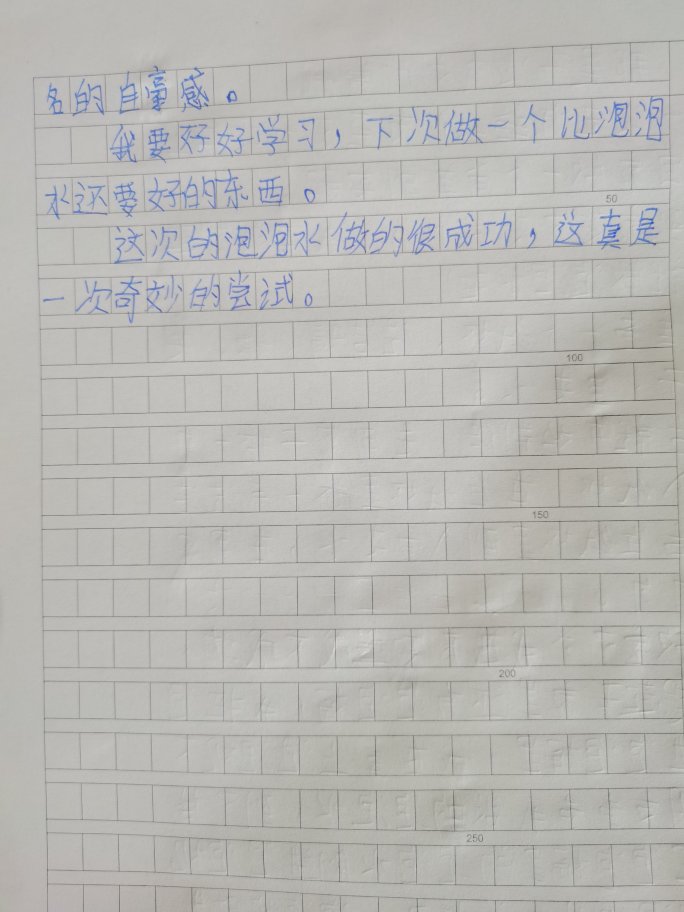 名的自豪感。
我要好好学习，下次做一个比泡泡
水还要好的东西。
50
这次的泡泡水做的很成功，这真是
一次奇妙的尝试。
100
150
200
250